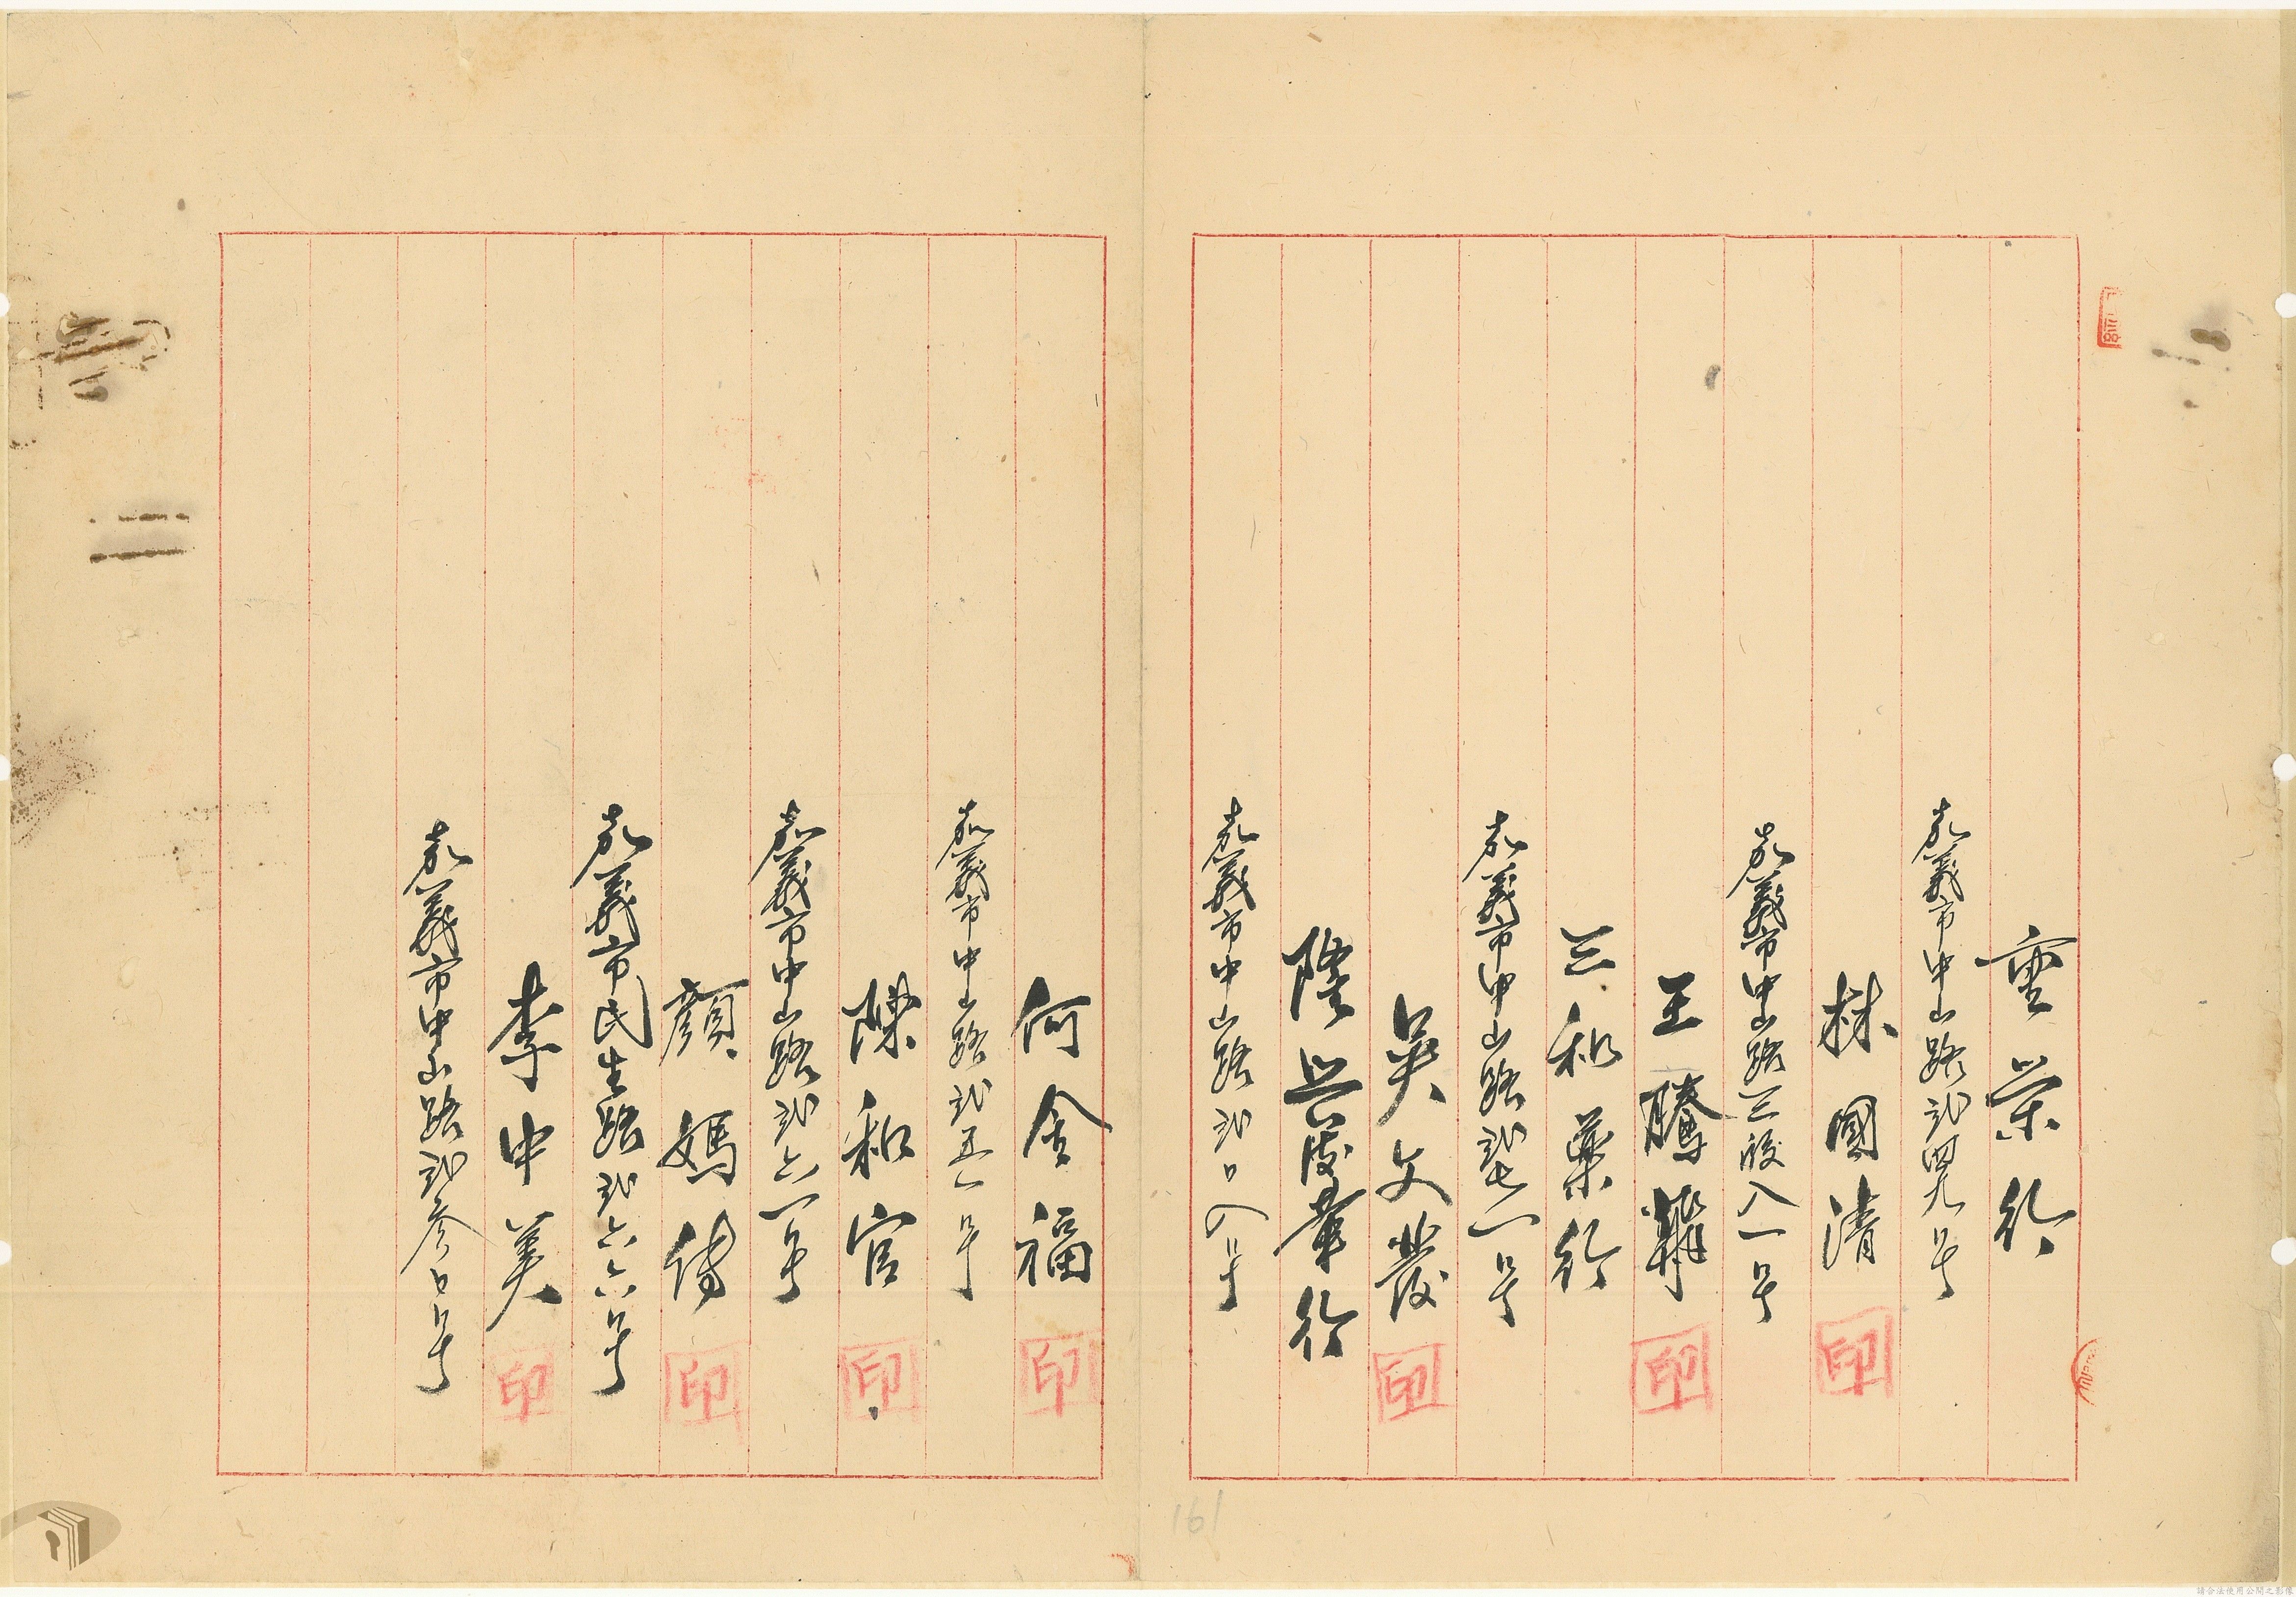 雲栄行
嘉義市中山路弍四九号
林國清
印
嘉義市中山路三段八一号
王騰
印
三和薬行
嘉義市中山路弍七一号
吳文發
印
隆興茂華行
嘉義市中山路弍口八号
何金福
印
嘉義市中山路弍五一号
陳和官
印
嘉義市中山路弍六一号
顏媽倚
印
嘉義市民生路弍六六号
李申美
印
嘉義市中山路弍参口号
161
請合法使用公開之影像